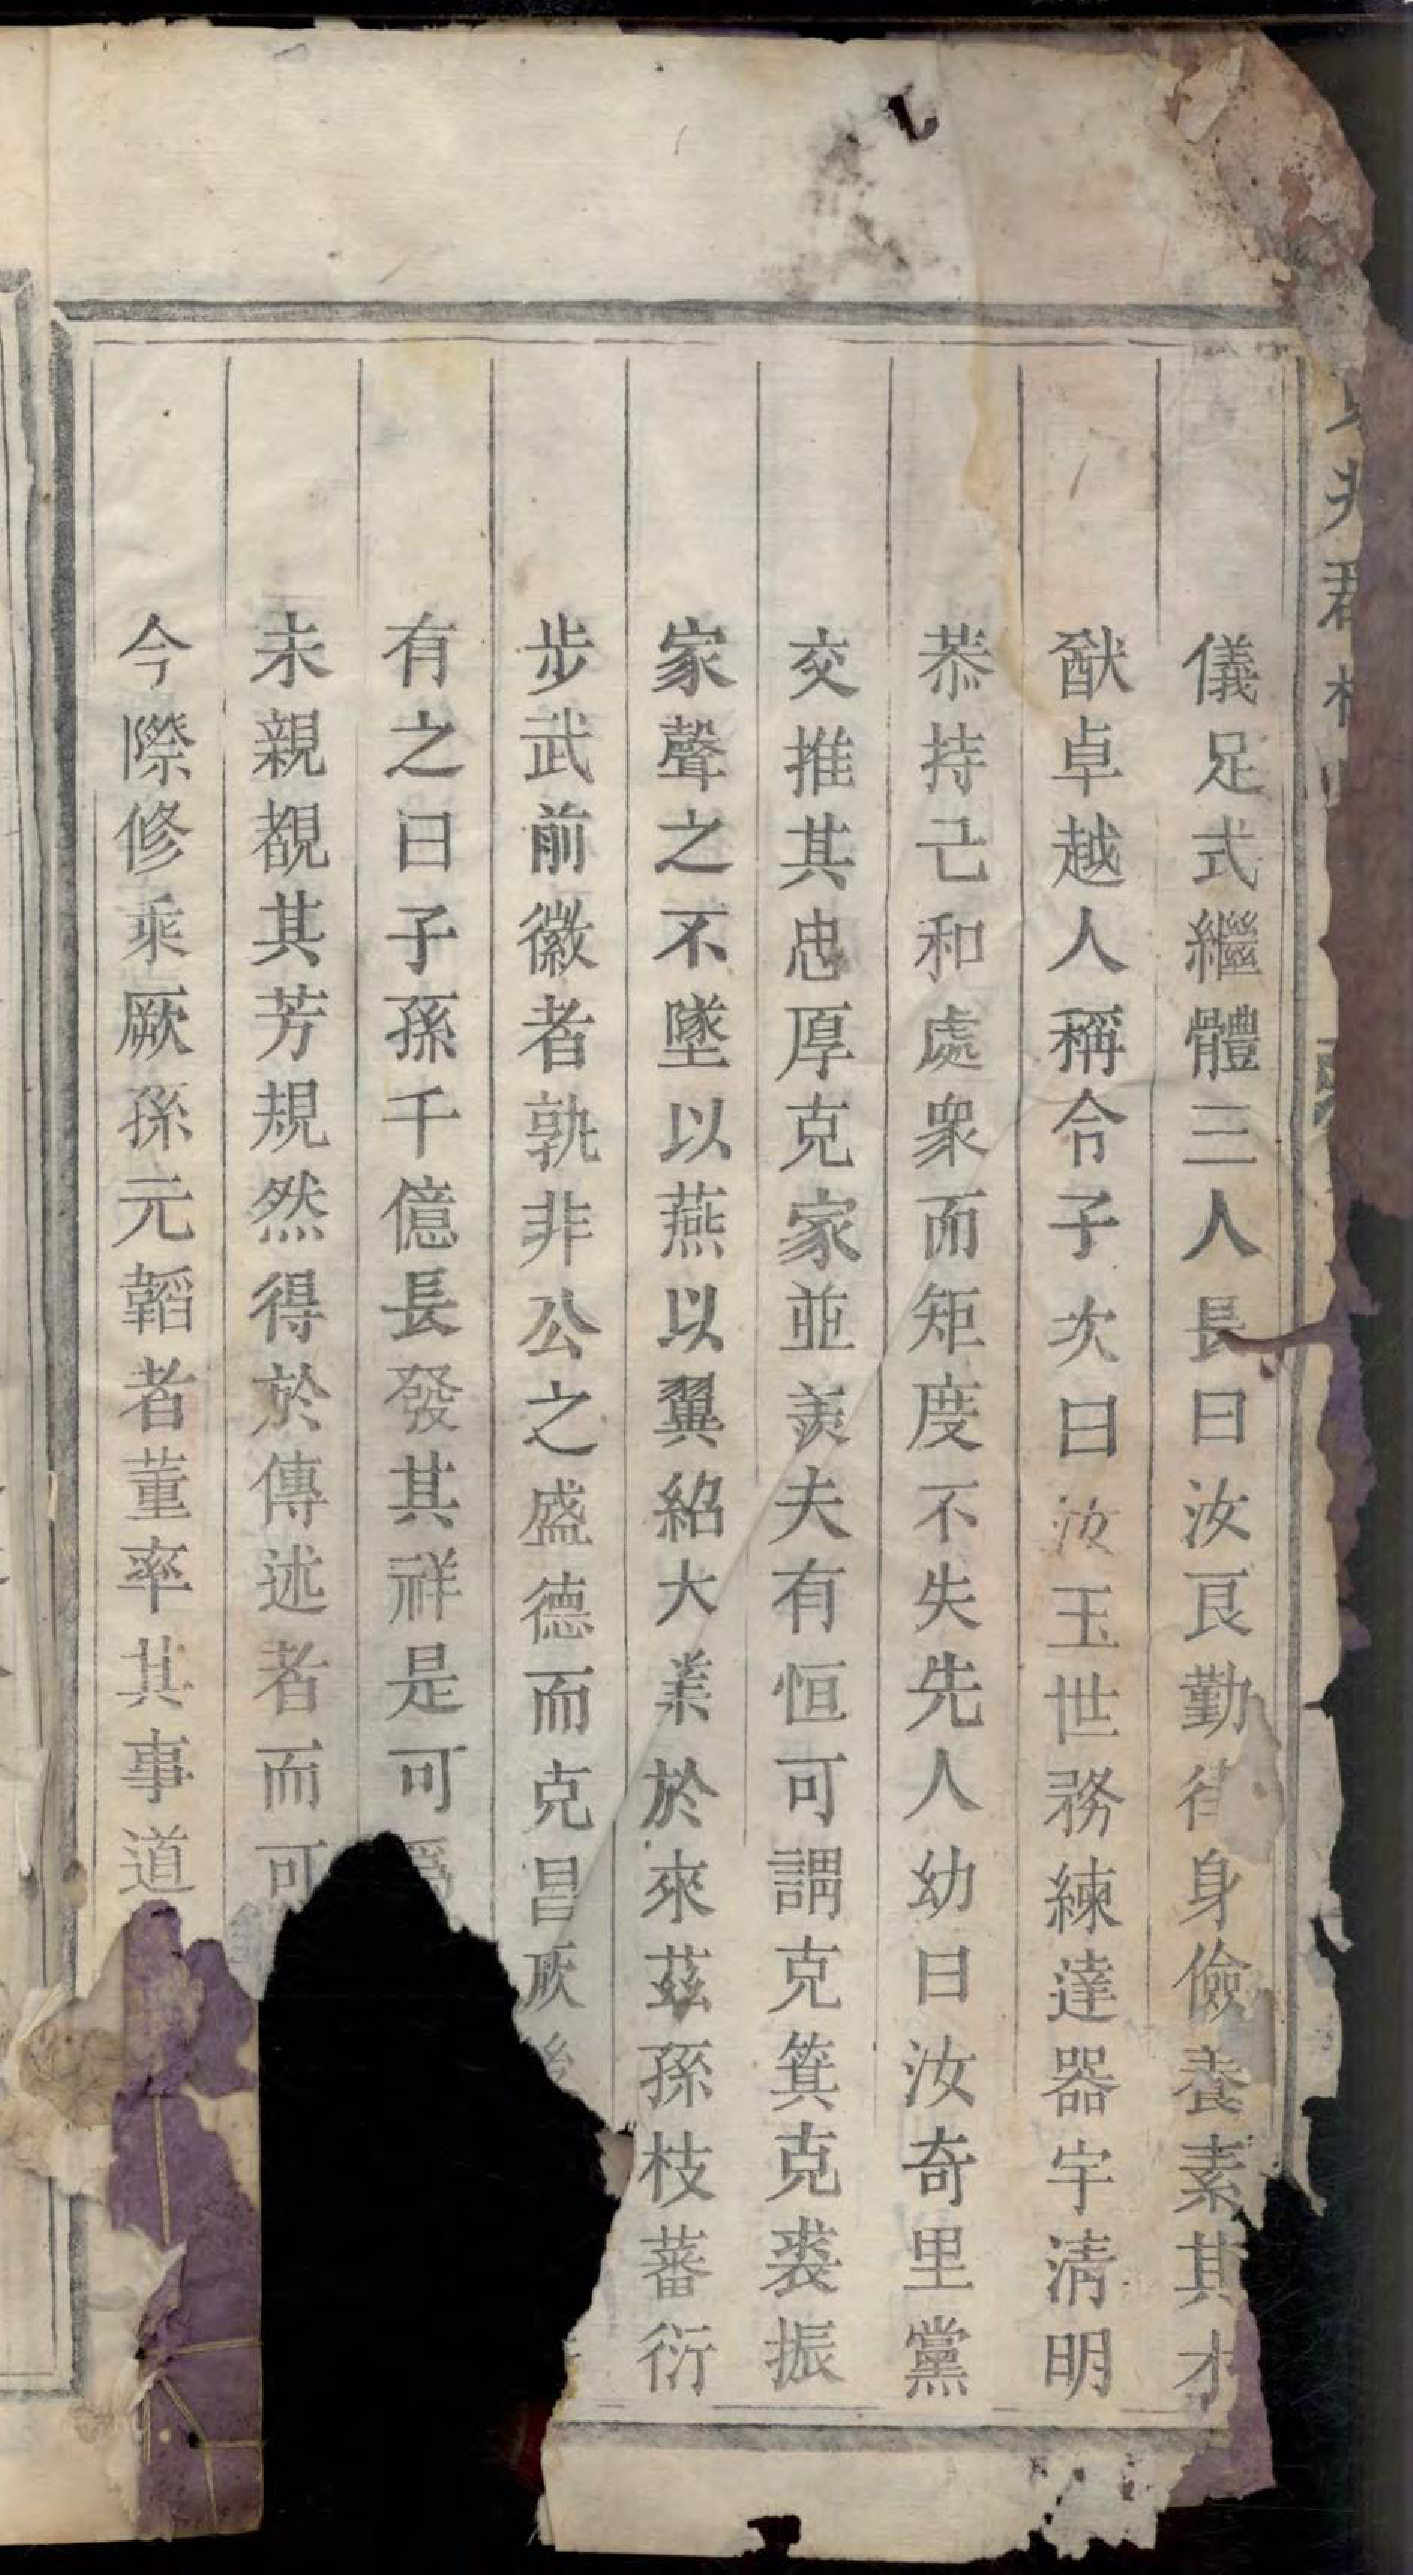 儀足式繼體三人長曰汝良勤在身儉養素其才
猷卓越人稱令子次曰汝玉世務練達器宇清明
恭持己和處衆而矩度不失先人幼曰汝奇里黨
交推其忠厚克家並羨夫有恒可謂克箕克裘振
家聲之不墜以燕以翼紹大業於來茲孫枝蕃衍
步武前徽者孰非公之盛德而克昌厥後
有之曰子孫千億長發其祥是可爲
未親覩其芳規然得於傳述者而可
今際修乘厥孫元韜者董率其事道